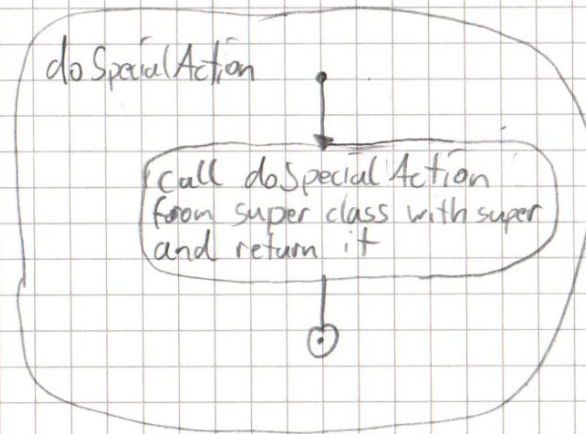 doSpecialAction
call doSpecialAction
from super class with super
and return it